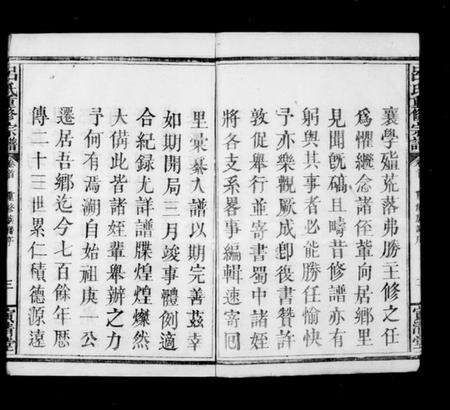 襄學殖荒落弗勝主修之任
爲懼繼念諸侄輩向居鄉里
見聞旣確且疇昔修譜亦有
躬與其事者必能勝任愉快
予亦樂觀厥成卽復書贊許
敦促舉行並寄書蜀中諸姪
將各支系畧事編輯速寄囘
里彙纂入譜以期完善茲幸
如期開局三月竣事體例適
合紀録尤詳譜牒煌煌燦然
大備此皆諸姪輩舉辦之力
予何有焉溯自始祖庚一公
遷居吾鄉迄今七百餘年歷
傳二十三世累仁積德源遠
呂氏重修宗譜
卷首
三